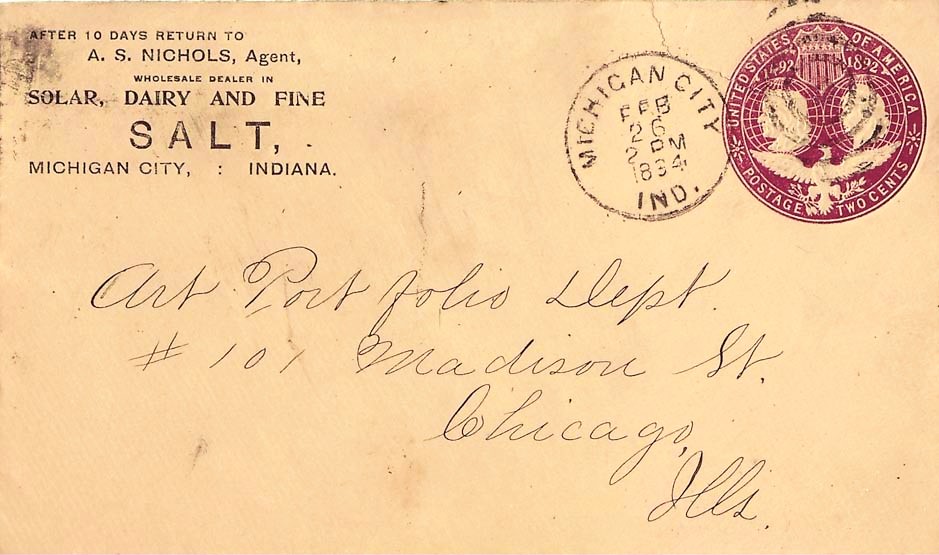 AFTER 10 DAYS RETURN TO
A. S. NICHOLS, Agent,
WHOLESALE DEALER IN
SOLAR, DAIRY AND FINE
SALT,
MICHIGAN CITY, : INDIANA.
MICHIGAN CITY
FEB
26
2 PM
1894
IND.
UNITED STATES OF AMERICA
1492 1892
POSTAGE TWO CENTS
Art Portfolio Dept.
# 101 Madison St.
Chicago,
Ills.